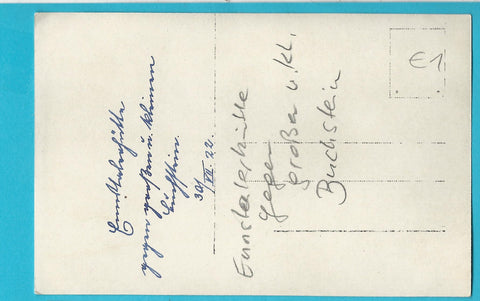 Ennstalerhütte
gegen großen u. kleinen
Buchstein.
30/VII. 22.
Ennstalerhütte
gegen
großen u. kl.
Buchstein
€1